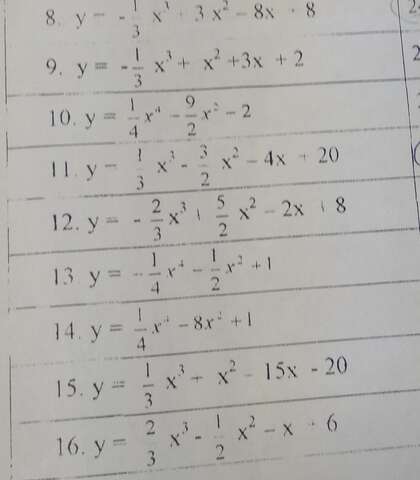 8. y = -1/3 x³ + 3x² - 8x + 8
9. y = -1/3 x³ + x² + 3x + 2
10. y = 1/4 x⁴ - 9/2 x² - 2
11. y = 1/3 x³ - 3/2 x² - 4x + 20
12. y = -2/3 x³ + 5/2 x² - 2x + 8
13 y = -1/4 x⁴ - 1/2 x² + 1
14. y = 1/4 x⁴ - 8x² + 1
15. y = 1/3 x³ + x² - 15x - 20
16. y = 2/3 x³ - 1/2 x² - x + 6